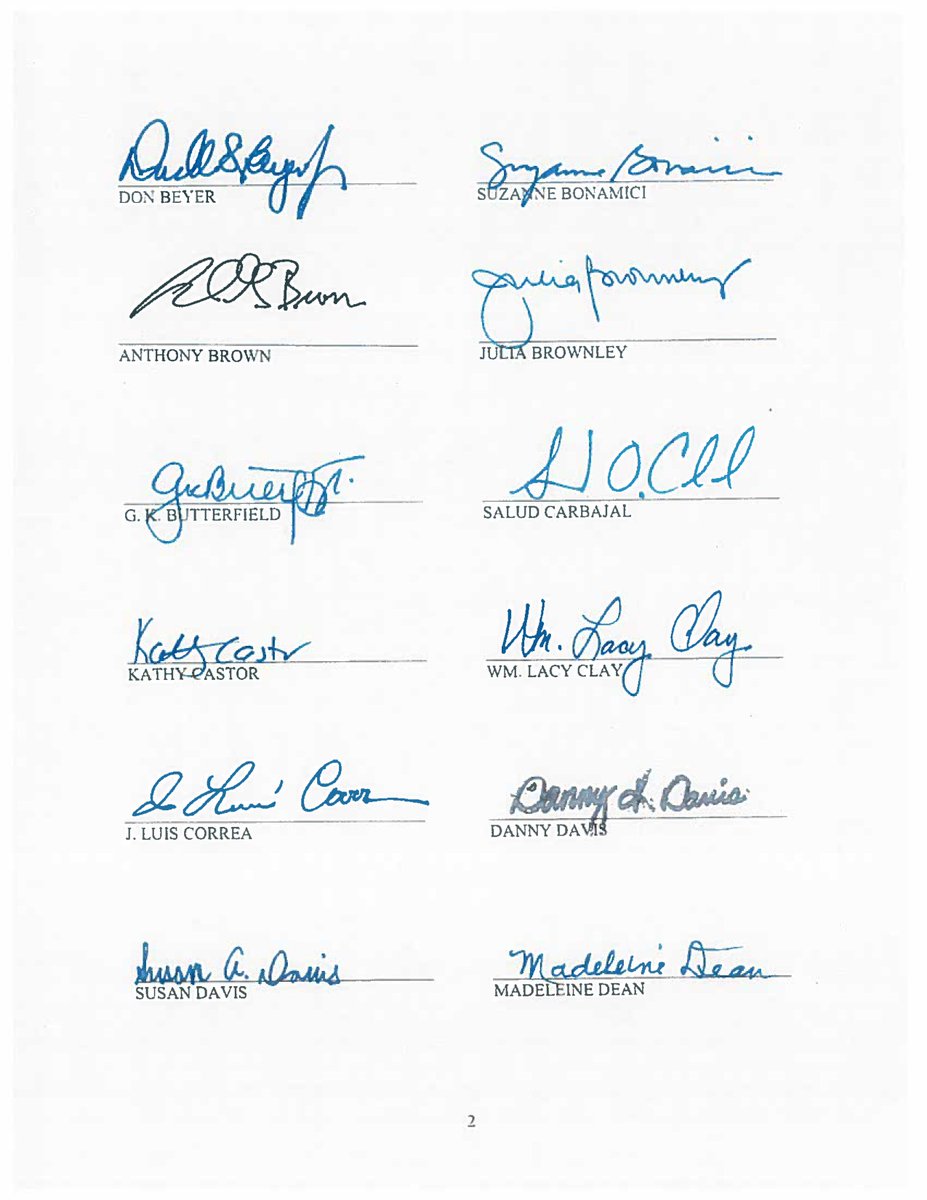 Donald S Beyer Jr Suzanne Bonamici
DON BEYER SUZANNE BONAMICI
Brown Julia Brownley
ANTHONY BROWN JULIA BROWNLEY
GK Butterfield
G. K. BUTTERFIELD SALUD CARBAJAL
Kathy Castor Wm. Lacy Clay
KATHY CASTOR WM. LACY CLAY
J Luis Correa Danny K. Davis
J. LUIS CORREA DANNY DAVIS
Susan A. Davis Madeleine Dean
SUSAN DAVIS MADELEINE DEAN
2